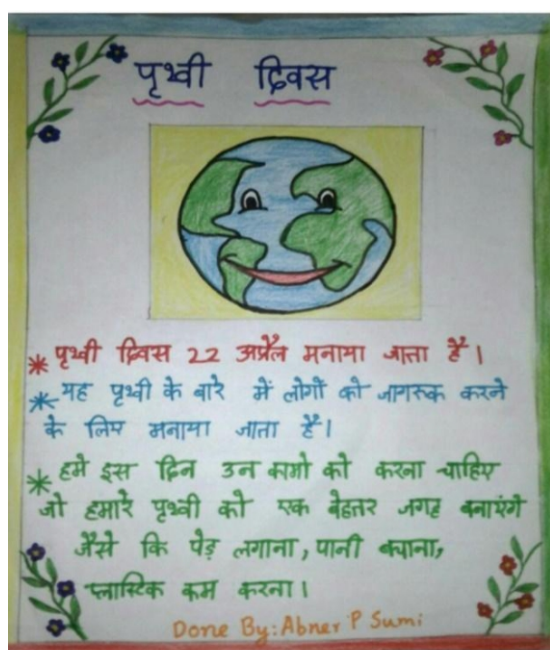 पृथ्वी दिवस
* पृथ्वी दिवस 22 अप्रैल मनाया जाता है।
* यह पृथ्वी के बारे में लोगों को जागरूक करने
के लिए मनाया जाता है।
* हमे इस दिन उन कामो को करना चाहिए
जो हमारे पृथ्वी को एक बेहतर जगह बनायेंगे
जैसे कि पेड़ लगाना, पानी बचाना,
प्लास्टिक कम करना।
Done By: Abner P Sumi